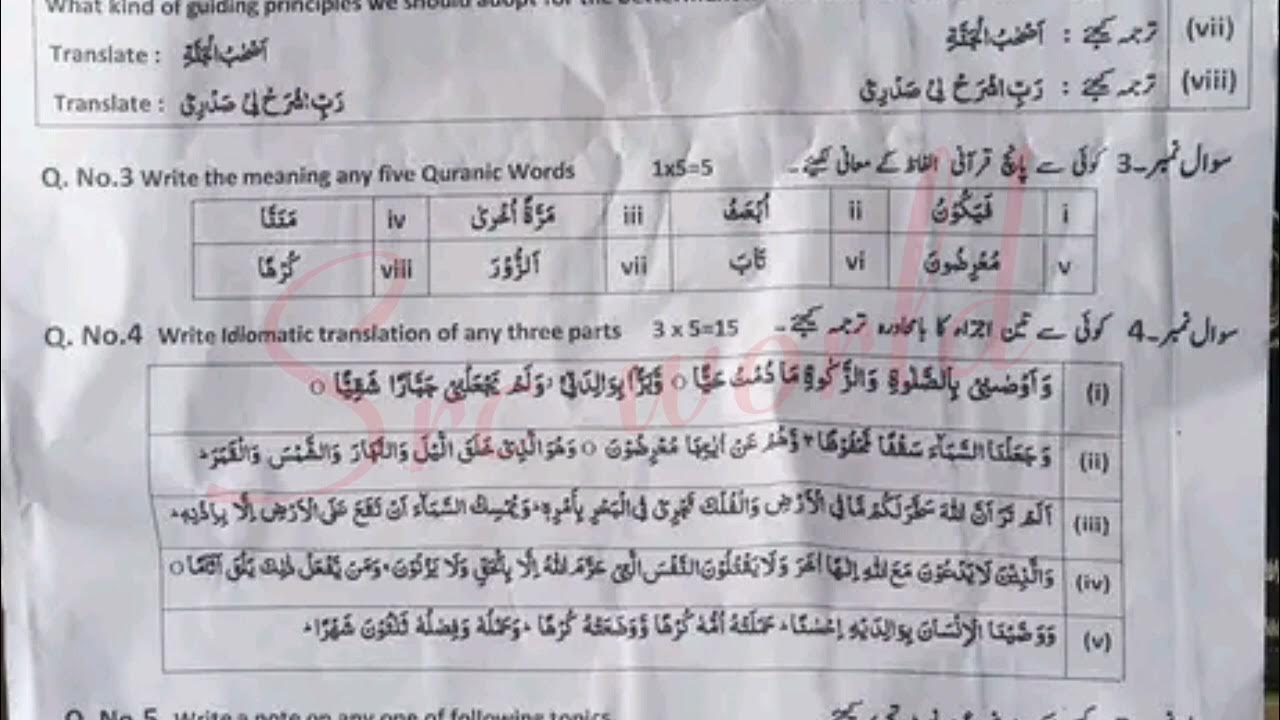 What kind of guiding principles we should adopt for the
Translate : اَصْحٰبُ الْجَنَّةِ (vii) ترجمہ کیجئے : اَصْحٰبُ الْجَنَّةِ
Translate : رَبِّ اشْرَحْ لِیْ صَدْرِیْ (viii) ترجمہ کیجئے : رَبِّ اشْرَحْ لِیْ صَدْرِیْ
Q. No.3 Write the meaning any five Quranic Words 1x5=5 سوال نمبر۔3 کوئی سے پانچ قرآنی الفاظ کے معانی لکھیئے۔
i فَیَکُوْنُ ii اُبْعَثُ iii مَرَّةً اُخْرٰی iv مَنَنَّا
v مُعْرِضُوْنَ vi تَابَ vii اَلزُّوْرَ viii كُرْهًا
Q. No.4 Write Idiomatic translation of any three parts 3 x 5=15 سوال نمبر۔4 کوئی سے تین اجزاء کا بامحاورہ ترجمہ کیجئے۔
(i) وَ اَوْصٰنِیْ بِالصَّلٰوةِ وَالزَّكٰوةِ مَا دُمْتُ حَیًّا o وَّبَرًّۢا بِوَالِدَتِیْ ۫ وَلَمْ یَجْعَلْنِیْ جَبَّارًا شَقِیًّا o
(ii) وَ جَعَلْنَا السَّمَآءَ سَقْفًا مَّحْفُوْظًا ۚ وَّهُمْ عَنْ اٰیٰتِهَا مُعْرِضُوْنَ o وَهُوَ الَّذِیْ خَلَقَ الَّیْلَ وَالنَّهَارَ وَالشَّمْسَ وَالْقَمَرَ ؕ
(iii) اَلَمْ تَرَ اَنَّ اللّٰهَ سَخَّرَ لَكُمْ مَّا فِی الْاَرْضِ وَالْفُلْكَ تَجْرِیْ فِی الْبَحْرِ بِاَمْرِهٖ ؕ وَیُمْسِكُ السَّمَآءَ اَنْ تَقَعَ عَلَی الْاَرْضِ اِلَّا بِاِذْنِهٖ ؕ
(iv) وَالَّذِیْنَ لَا یَدْعُوْنَ مَعَ اللّٰهِ اِلٰهًا اٰخَرَ وَلَا یَقْتُلُوْنَ النَّفْسَ الَّتِیْ حَرَّمَ اللّٰهُ اِلَّا بِالْحَقِّ وَلَا یَزْنُوْنَ ۚ وَمَنْ یَّفْعَلْ ذٰلِكَ یَلْقَ اَثَامًا o
(v) وَوَصَّیْنَا الْاِنْسَانَ بِوَالِدَیْهِ اِحْسٰنًا ؕ حَمَلَتْهُ اُمُّهٗ كُرْهًا وَّوَضَعَتْهُ كُرْهًا ؕ وَحَمْلُهٗ وَفِصٰلُهٗ ثَلٰثُوْنَ شَهْرًا ؕ
Q. No.5 Write a note on any one of following topics
Src world